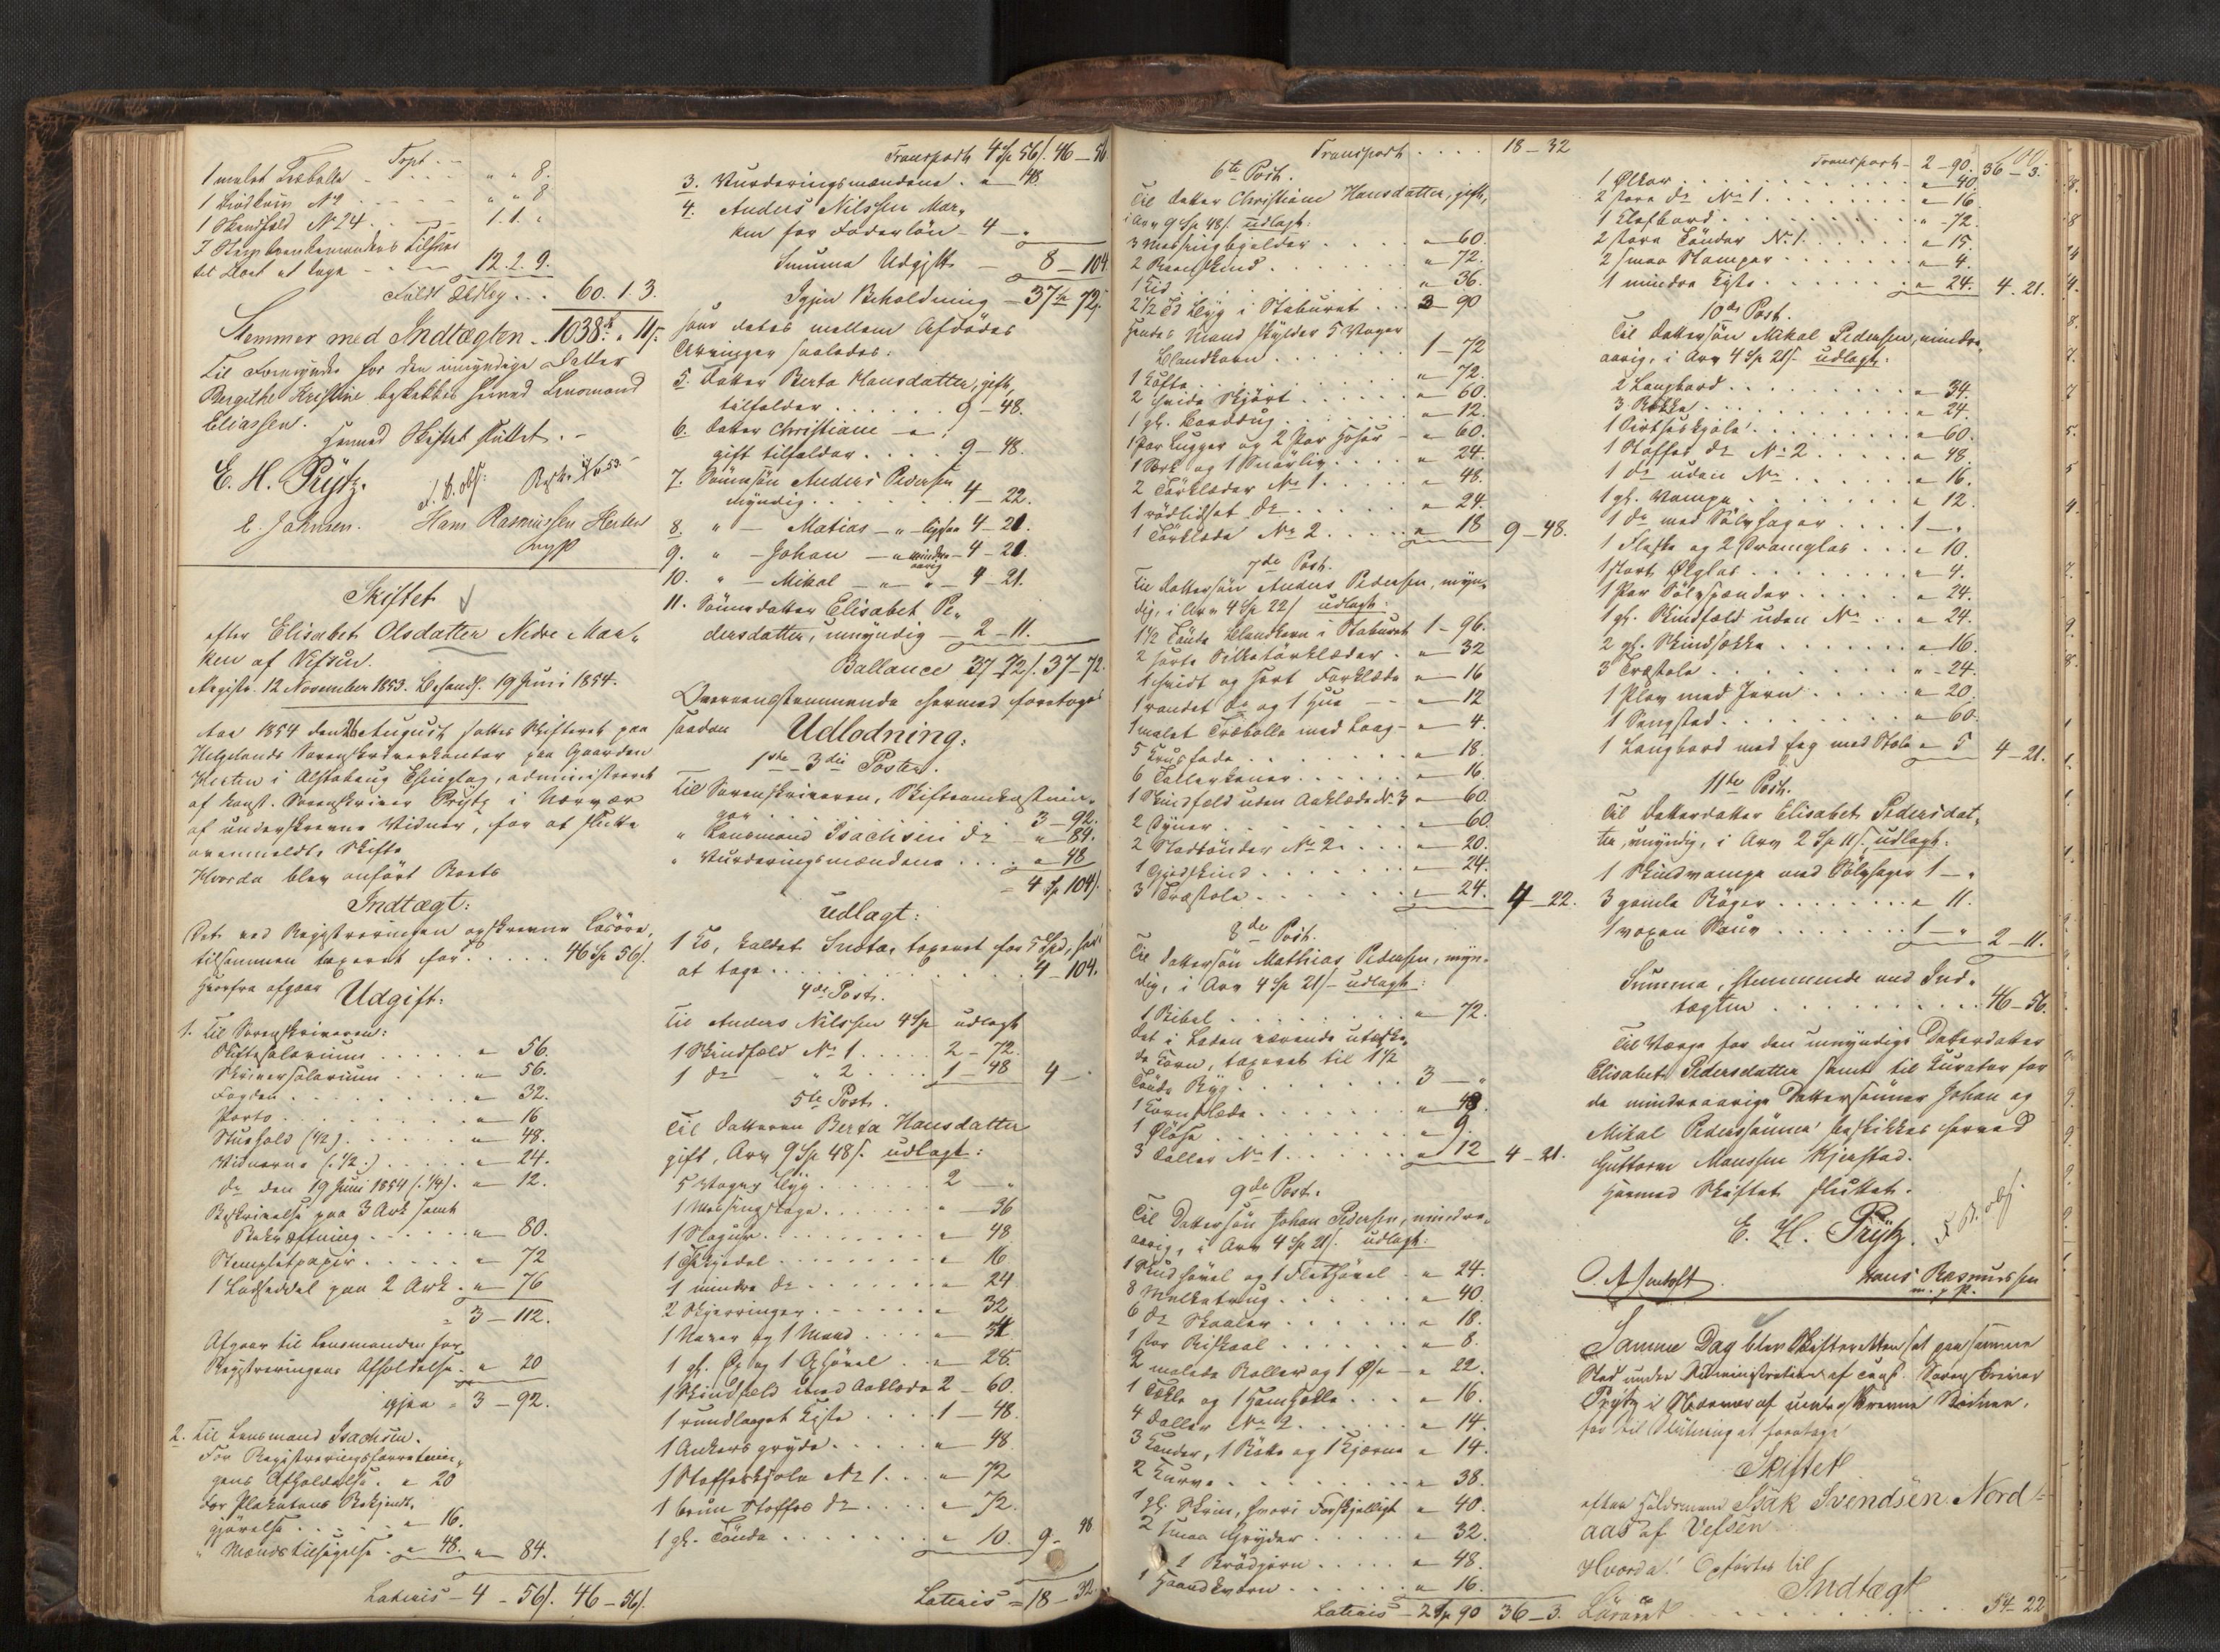 Trpt. --
1 malet Træbolle - - - " " 8.
1 Brødkurv No 9 - - - " " 8
1 Skindfeld No 24 - - - 1. 1. "
til Rest at tage - - - 12. 2. 9.
Fuldt Udlæg . . . 60. 1. 3.
Stemmer med Indtægten - 1038 " 11 /-
Til Formynder for den umyndige Datter
Bergithe Kristine beskikkes herved Lensmand
Eliassen.
Hermed Skiftet sluttet. -
E. H. Prÿtz.
C. Johnsen. Hans Rasmussen Herten
Skiftet
efter Elisabet Olsdatter Nedre Mar-
ken af Vefsen.
Registr. 12 November 1853. Behandl. 19 Juni 1854.
Aar 1854 den 26 August sattes Skifteret paa
Helgelands Sorenskriverkontor paa Gaarden
Herten i Alstahaug Thinglag, administreret
af konst. Sorenskriver Prÿtz i Nærvær
af underskrevne Vidner, for at slutte
ovenmeldte Skifte
Hvorda blev anført Boets
Indtægt:
Det ved Registreringen opskrevne Løsøre,
tilsammen taxeret for . . . . . 46 Sp 56 /.
Herfra afgaar Udgift:
1. Til Sorenskriveren:
Skiftesalarium . . . . . " 56.
Skriversalarium . . . . " 56.
Fogden . . . . . . . . . " 32.
Porto . . . . . . . . . " 16
Stuehold (1/2) . . . . . . " 48.
Vidnerne (. 1/2.) . . . . . " 24.
do den 19 Juni 1854 (. 1/4). " 12.
Beskrivelse paa 3 Ark samt
Bekræftning . . . . . . " 80.
Stemplet papir . . . . . " 72
1 Lodseddel paa 2 Ark . " 76
3 - 112.
Afgaar til Lensmanden for
Registreringens Afholdelse . " 20
igjen = 3 - 92.
2. Til Lensmand Isachsen.
For Registreringsforretnin-
gens Afholdelse . " 20
For Plakatens Bekjendt-
gjørelse . . . . . " 16.
" Mænds tilsigelse . " 48. " 84.
Lateris - 4 - 56 /. 46 - 56 /.
Transport 4 Sp 56 /. 46 - 56
3. Vurderingsmændene . " 48.
4. Anders Nilssen Mar-
ken for Foderløn - 4 - "
Summa Udgift - 8 - 104
Igjen Beholdning - 37 Sp 72 /.
som deles mellem Afdødes
Arvinger saaledes:
5. Datter Berta Hansdatter, gift,
tilfalder . . . . . . 9 - 48.
6. Datter Christiane - " ;
gift tilfalder . . . . 9 - 48.
7. Sønnesøn Anders Pedersen
myndig . . . . . . . 4 - 22.
8. " - Matias - " ligesaa 4 - 21.
9. " - Johan - " mindre aarig - 4 - 21.
10. " - Mikal - " - " - 4 - 21.
11. Sønnedatter Elisabet Pe-
dersdatter, umyndig - 2 - 11.
Ballance 37 - 72 /. 37 - 72.
Overensstemmende hermed foretoges
saadan Udlodning:
1ste - 3die Poster.
Til Sorenskriveren, Skifteomkostnin-
ger . . . . . . . . . . 3 - 92.
" Lensmand Isachsen do - " 84.
" Vurderingsmændene . . . . " 48
= 4 Sp 104 /.
udlagt:
1 Ko, kaldet Snota, taxeret for 5 Spd, for
at tage . . . . . . . . . . . . 4 - 104.
4de Post.
Til Anders Nilssen 4 Sp udlagt
1 Skindfeld No 1 . . . . . 2 - 72.
1 do - " 2 . . . . 1 - 48 4 - "
5te Post.
Til Datteren Berta Hansdatter
gift, Arv 9 Sp 48 /. udlagt:
5 Voger Byg . . . . . . . 2 - "
1 Messingstage . . . . . . " - 36
1 Slaguhr . . . . . . . . " - 48
1 . . . . . . . . " - 16
1 mindre do . . . . . . . " - 24
2 Skjerringer . . . . . . " - 32
1 Naver og 1 . . . . " - 34
1 gl. Øx og 1 Øxhøvel . . " - 28.
1 Skindfeld med Aaklæde 2 - 60.
1 rundlaaget Kiste . . . . 1 - 48
1 Ankersgryde . . . . . " - 48
1 Stoffeskjole No 1 . . . " - 72
1 brun Stoffes do . . . . " - 72.
1 gl. Tønde . . . . . . . " 10. 9 - 48
Lateris = 18 - 32
Transport . . . . 18 - 32
6te Post.
Til Datter Christiane Hansdatter, gift,
i Arv 9 Sp 48 /. udlagt:
3 Messingbøgelder . . . . " - 60.
2 . . . . . . . " - 72.
1 . . . . . . . . . . . " - 36.
2 1/2 Td Byg i Staburet . . . 3 - 90
Hendes Mand skylder 5 Voger
Blandkorn . . . . . . . 1 - 72
1 Kofte . . . . . . . . . " - 72.
2 hvide Skjørt . . . . . . " - 60.
1 gl. . . . . . " - 12.
1 Par Lugger og 2 Par Hoser - " - 60.
1 Særk og 1 Snørliv . . . . " - 24.
2 Tørklæder No 1 . . . . . " - 48.
1 do . . . . . " - 24.
1 Tørklæde No 2 . . . . . " 18 9 - 48.
7de Post.
Til Dattersøn Anders Pedersen, myn-
dig, i Arv 4 Sp 22 / udlagt:
1 1/2 Tønde Blandkorn i Staburet 1 - 96.
2 sorte Silketørklæder . " - 32
1 hvidt og sort Forklæde " - 16
1 randet do og 1 Hue - - " - 12
1 malet Træbolle med Laag - " - 4.
5 Krusfade . . . . . . . " - 18.
6 Tallerkener . . . . . . " - 16.
1 Skindfeld uden Aaklæde No 3 " - 60.
2 Dyner . . . . . . . . " - 60.
2 Stadtønder No 2 . . . . " - 20.
1 Gjedskind . . . . . . . " - 24.
3 Træstole . . . . . . . " - 24. 4 - 22.
8de Post.
Til Dattersøn Mathias Pedersen, myn-
dig, i Arv 4 Sp 21 /- udlagt:
1 Bibel . . . . . . . . . " - 72.
Det i Laden værende utærske-
de Korn, taxeret til 1 1/2
Tønde Byg . . . . . . . 3 - "
1 Kornflade . . . . . . . " - 48.
1 Øløse . . . . . . . . . " - 9.
3 Taller No 1 . . . . . . " 12 4 - 21.
9de Post.
Til Dattersøn Johan Pedersen, mindre-
aarig, i Arv 4 Sp 21 /. udlagt:
1 Skrubhøvel og 1 Sletthøvel - " 24.
8 Melketrug . . . . . . . " - 40.
6 do Skaaler . . . . . . " - 18.
1 stor Riskaal . . . . . . " - 8.
2 malede Boller og 1 Øse - " 22.
1 og 1 . . . " - 16.
4 Taller No 2 . . . . . . " - 14.
3 Kander, 1 Bøtte og 1 Kjærne " 14.
2 Kurve . . . . . . . . " - 38.
1 gl. Skrin, hvori Forskjelligt " 40.
2 smaa Gryder . . . . . " - 32.
1 Brødjern . . . . . " - 48.
1 Haandkværn . . . . . . " - 16.
Lateris - 2 Sp 90 36 - 3.
Transport - 2 - 90. 36 - 3.
1 Ølkar . . . . . . . . . " - 40.
2 store do No 1 . . . . . . " - 16.
1 Klafbord . . . . . . . . " - 72.
2 store Tønder No 1 . . . . " - 15.
2 smaa Stamper . . . . . . " - 4.
1 mindre Kiste . . . . . . " - 24. 4 - 21.
10de Post.
Til Dattersøn Mikal Pedersen, mindre-
aarig, i Arv 4 Sp 21 /- udlagt:
2 Langbord . . . . . . . . " - 34.
3 . . . . . . . . " - 24.
1 . . . . . " - 60.
1 Stoffes do No 2 . . . . . " - 48.
1 do uden No . . . . . . " - 16.
1 gl. Kampe . . . . . . . " - 12.
1 do med Sølvhager . . . . 1 - "
1 Flaske og 2 Dramglas . . . " 10.
1 stort Ølglas . . . . . . " - 4.
1 Par Sølvspænder . . . . " - 24.
1 gl. Skindfeld uden No . . " - 24.
2 gl. Skindsække . . . . . " - 16.
3 Træstole . . . . . . . " - 24.
1 Plov med Jern . . . . . " - 20.
1 Sengsted . . . . . . . " - 60.
1 Langbord med Fag med Stole " 5 4 - 21.
11te Post.
Til Datterdatter Elisabet Pedersdat-
ter, umyndig, i Arv 2 Sp 11 /. udlagt:
1 Skindkampe med Sølvhager 1 - "
3 gamle Bøger . . . . . . . " 11.
1 voxen Sauv . . . . . . 1 - " 2 - 11.
Summa, stemmende med Ind-
tægten . . . . . . . . . . 46 - 56.
Til Værge for den umyndige Datterdatter
Elisabet Pedersdatter samt til Kurator for
de mindreaarige Dattersønner Johan og
Mikal Pederssønner beskikkes herved
Guttorm Monssen Kjerstad.
Hermed Skiftet sluttet.
E. H. Prÿtz.
Hans Rasmussen
m. p. P.
Samme Dag blev Skifteretten sat paa samme
Sted under Administration af const. Sorenskriver
Prÿtz i Nærvær af underskrevne Vidner,
for til Slutning at foretage
Skiftet
efter Huusmand Isak Svendsen Nord-
aas af Vefsen
Hvorda: Opførtes til
Indtægt
Løsøret . . . . . . . . . . . 54 - 22